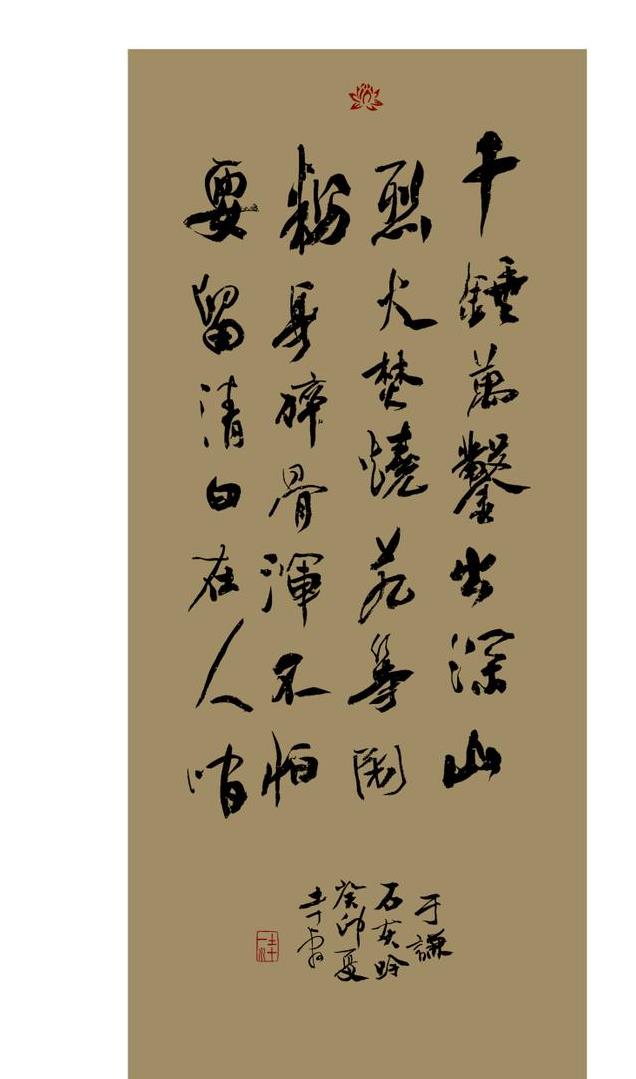 千錘萬鑿出深山
烈火焚燒若等閑
粉身碎骨渾不怕
要留清白在人間
于謙
石灰吟
癸卯夏